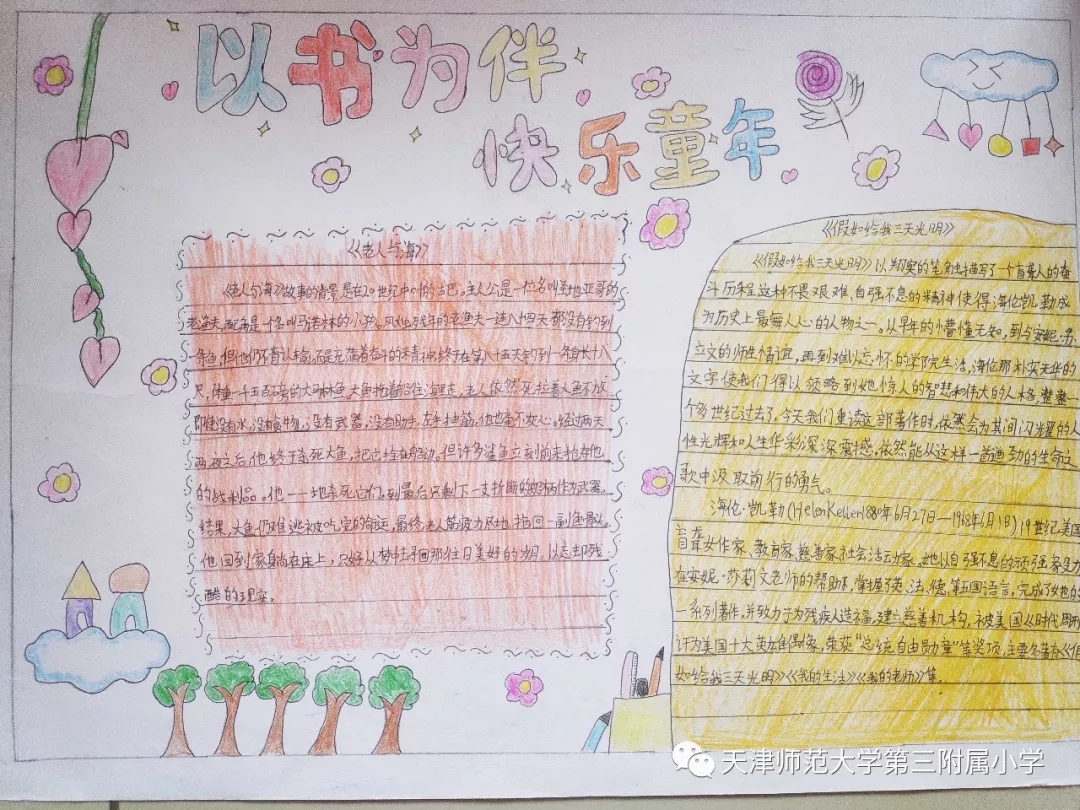 以书为伴
快乐童年
《老人与海》
《老人与海》故事的背景是在20世纪中叶的古巴,主人公是一位名叫圣地亚哥的
老渔夫,配角是一个名叫马诺林的小孩。风烛残年的老渔夫一连八十四天都没有钓到
一条鱼,但他仍不肯认输,而是充满着奋斗的精神,终于在第八十五天钓到一条身长十八
尺,体重一千五百磅的大马林鱼,大鱼拖着船往海里走,老人依然死拉着大鱼不放,
即使没有水,没有食物,没有武器,没有助手,左手抽筋,他也毫不灰心。经过两天
两夜之后,他终于杀死大鱼,把它拴在船边。但许多鲨鱼立刻前来抢夺他
的战利品。他一一地杀死它们,到最后只剩下一支折断的舵柄作为武器。
结果,大鱼仍难逃被吃完的命运,最终老人筋疲力尽地拖回一副鱼骨头。
他回到家躺在床上,只好从梦中寻回那往日美好的岁月,以忘却残
酷的现实。
《假如给我三天光明》
《假如给我三天光明》以翔实的笔触描写了一个盲聋人的奋
斗历程,这种不畏艰难、自强不息的精神使得海伦凯勒成
为历史上最舞人心的人物之一。从早年的懵懂无知,到与安妮·苏
立文的师生情谊,再到难以忘怀的学院生活,海伦那朴实无华的
文字使我们得以领略到她惊人的智慧和伟大的人格,整整一
个多世纪过去了,今天我们重读这部著作时,依然会为其间闪耀的人
性光辉和人生华彩深深震撼,依然能从这样一首遒劲的生命之
歌中汲取前行的勇气。
海伦·凯勒(Helen Keller1880年6月27日—1968年6月1日)19世纪美国
盲聋女作家、教育家、慈善家、社会活动家。她以自强不息的顽强毅力
在安妮·莎莉文老师的帮助下,掌握了英、法、德等五国语言,完成了她的
一系列著作,并致力于为残疾人造福,建立慈善机构,被美国《时代周刊
评为美国十大英雄偶像,荣获"总统自由勋章"等奖项,主要著作有《假
如给我三天光明》《我的生活》《我的老师》等.
天津师范大学第三附属小学